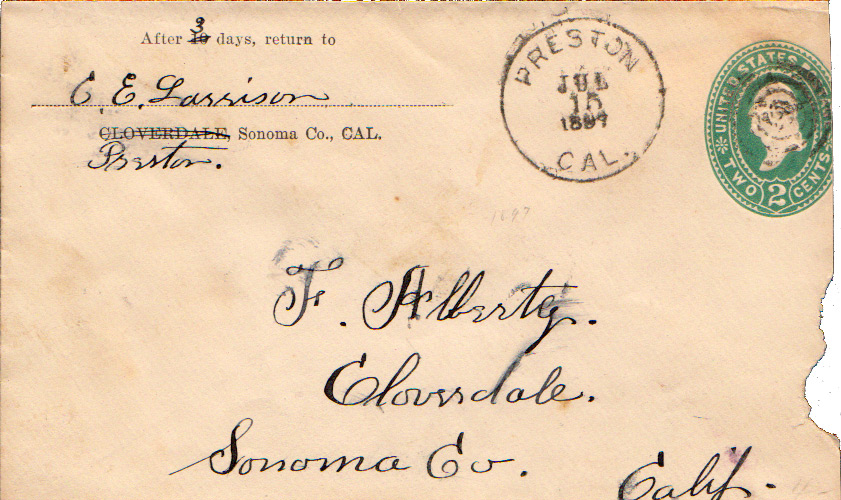 3
After 10 days, return to
C. E. Larrison
CLOVERDALE, Sonoma Co., CAL.
Preston.
PRESTON
JUL
15
1897
CAL.
UNITED STATES
TWO 2 CENTS
1897
F. Alberty.
Cloverdale.
Sonoma Co.
Calif.